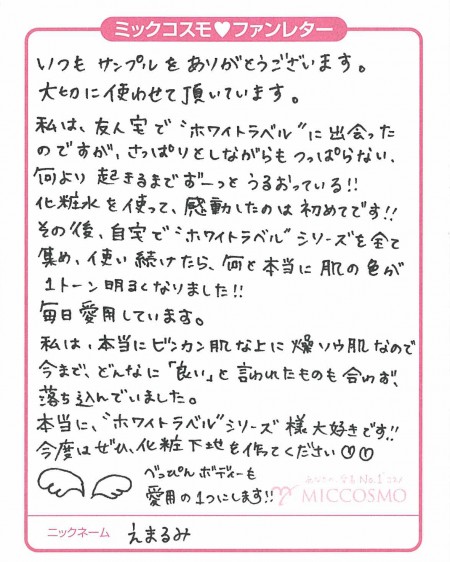 ミックコスモ♥ファンレター
いつも サンプルを ありがとうございます。
大切に使わせて頂いています。
私は、友人宅で“ホワイトラベル”に出会った
のですが、さっぱりとしながらもつっぱらない、
何より 起きるまでずーっと うるおっている!!
化粧水を使って、感動したのは 初めてです!!
その後、自宅で“ホワイトラベル”シリーズを全て
集め、使い続けたら、何と本当に 肌の色が
1トーン 明るくなりました!!
毎日愛用しています。
私は、本当にビンカン肌な上に 燥ソウ肌なので
今まで、どんなに「良い」と言われたものも合わず、
落ち込んでいました。
本当に、“ホワイトラベル”シリーズ 様大好きです!!
今度は ぜひ、化粧下地を作ってください♡♡
べっぴんボディーも
愛用の1つにします!!
MICCOSMO
ニックネーム えまるみ